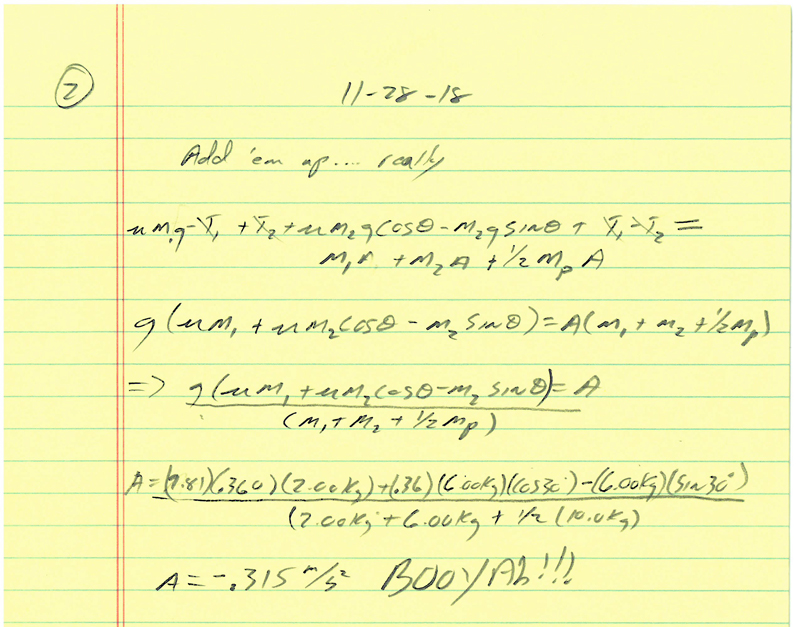 2
11-28-18
Add 'em up.... really
μm₁g - T₁ + T₂ + μm₂g cosθ - m₂g sinθ + T₁ - T₂ =
m₁A + m₂A + 1/2 mₚ A
g(μm₁ + μm₂cosθ - m₂ sinθ) = A(m₁ + m₂ + 1/2 mₚ)
=> g(μm₁ + μm₂cosθ - m₂ sinθ) = A
(m₁ + m₂ + 1/2 mₚ)
A = (9.81)(.360)(2.00kg) + (.36)(6.00kg)(cos30°) - (6.00kg)(sin30°)
(2.00kg + 6.00kg + 1/2 (10.0kg)
A = -.315 m/s² BOOYAh!!!